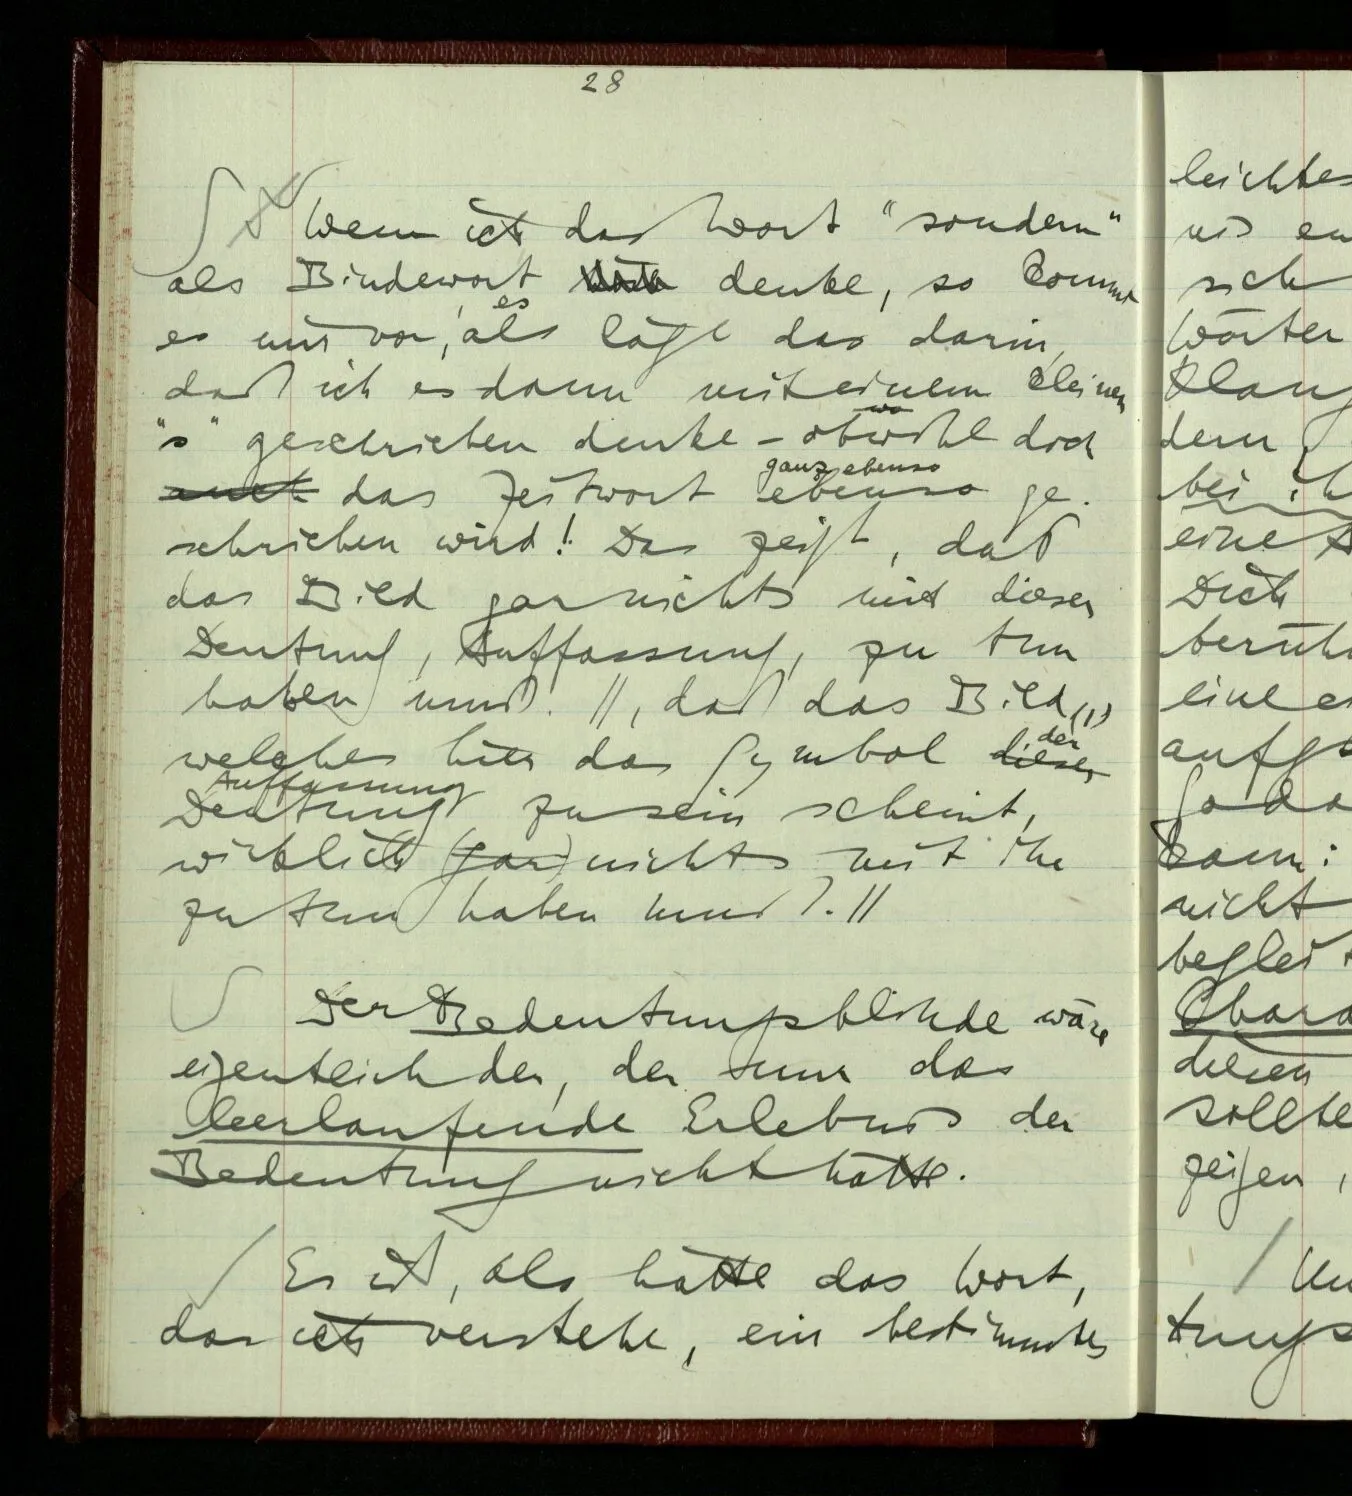 28
Wenn ich das Wort "sondern"
als Bindewort denke, so kommt
es mir vor, es
als läge das darin,
daß ich es dann mit einem kleinen
"s" geschrieben denke – obwohl doch
wo
auch das Zeitwort ebenso ge-
ganz ebenso
schrieben wird! Das zeigt, daß
das Bild garnichts mit dieser
Deutung, Auffassung, zu tun
haben muß. //, daß das Bild(,)
welches hier das Symbol dieser
der
Auffassung
Deutung zu sein scheint,
wirklich (gar) nichts mit ihr
zu tun haben muß. //
Der Bedeutungsblinde wäre
eigentlich der, der nun das
leerlaufende Erlebnis der
Bedeutung nicht hätte.
Es ist, als hätte das Wort,
das ich verstehe, ein bestimmtes
leichtes
sich
Wörter
Klang
dern
bei ih
eine
Dich
berüh
eine
aufge
kann:
nicht
beglei
Chara
denen
sollte
zeigen,
tungs